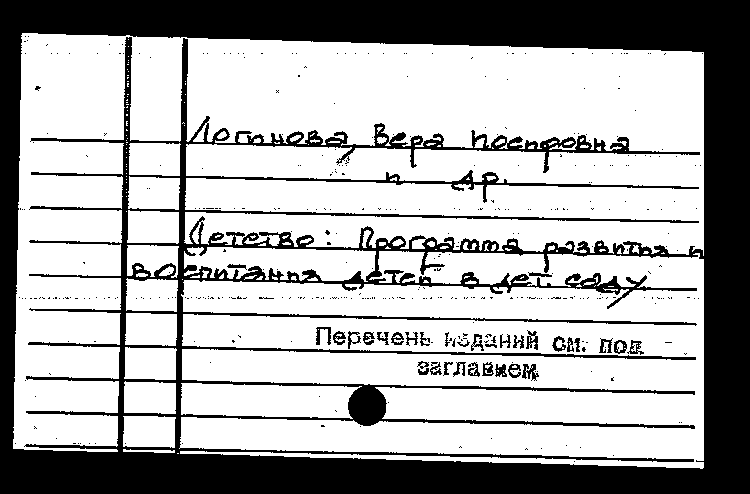 Логинова, Вера Иосифовна
и др.
Детство: Программа развития и
воспитания детей в дет. саду
Перечень изданий см. под
заглавием